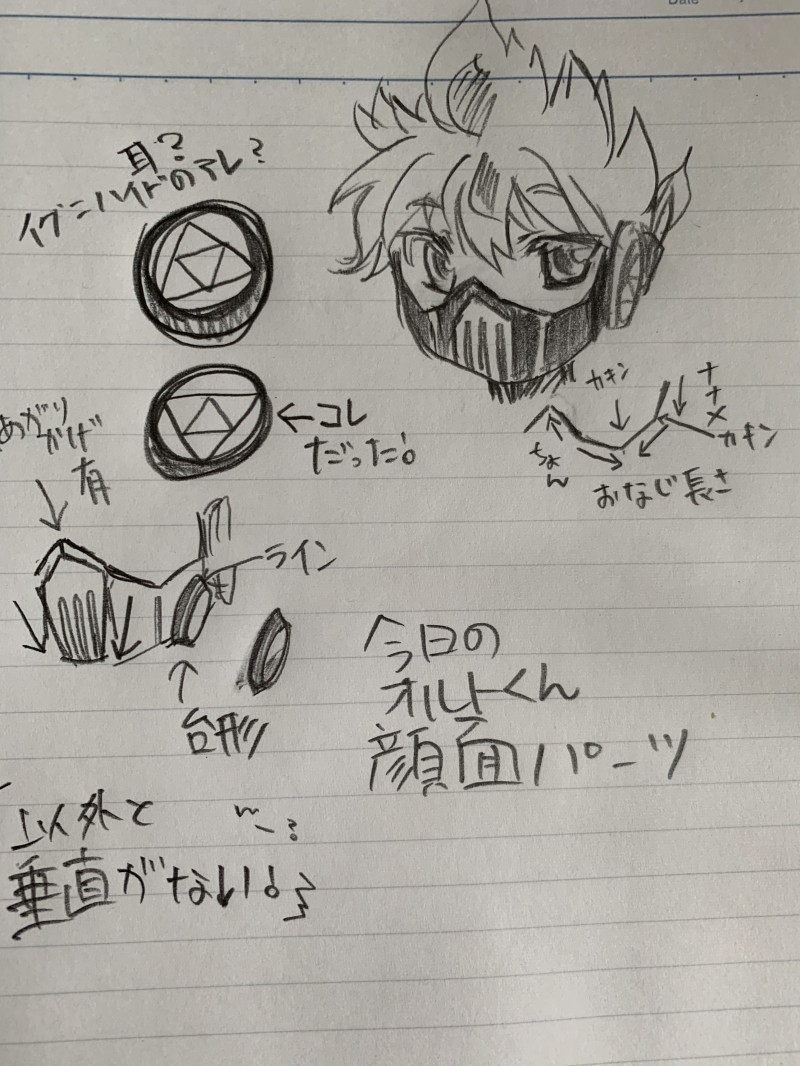 Date
耳?
イグニハイドのアレ?
←コレ
だった!
カキン
ナナメ
カキン
ちょん
おなじ長さ
有
ライン
台形
今日の
オルトくん
顔面パーツ
以外と
垂直がない!